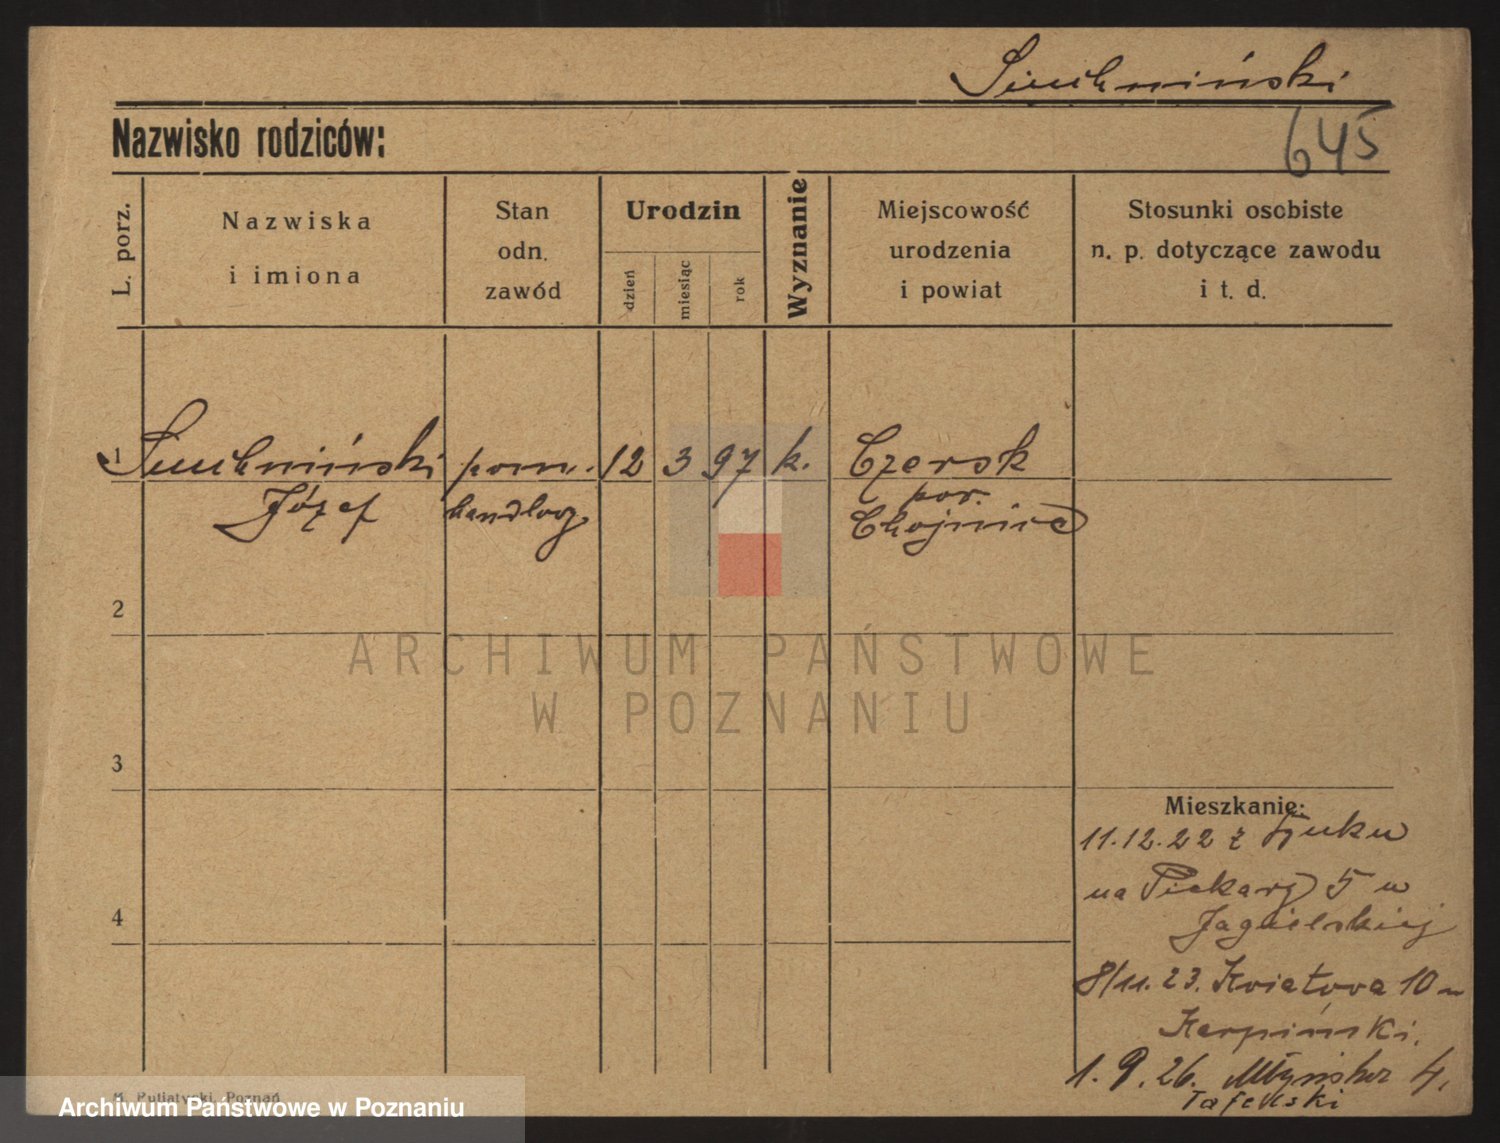 Siuchniński
Nazwisko rodziców:
645
L. porz.
Nazwiska
i imiona
Stan
odn.
zawód
Urodzin
dzień
miesiąc
rok
Wyznanie
Miejscowość
urodzenia
i powiat
Stosunki osobiste
n. p. dotyczące zawodu
i t. d.
1 Siuchniński pom. 12 3 97 k. Czersk
Józef handlow. pow.
Chojnice
2
ARCHIWUM PAŃSTWOWE
W POZNANIU
3
Mieszkanie:
11.12.22 z Buku
na Piekary 5 u
Jagielskiej
4
8/11.23. Kwiatowa 10
Karpiński.
1.9.26. Młyńska 4.
Poznań
Archiwum Państwowe w Poznaniu